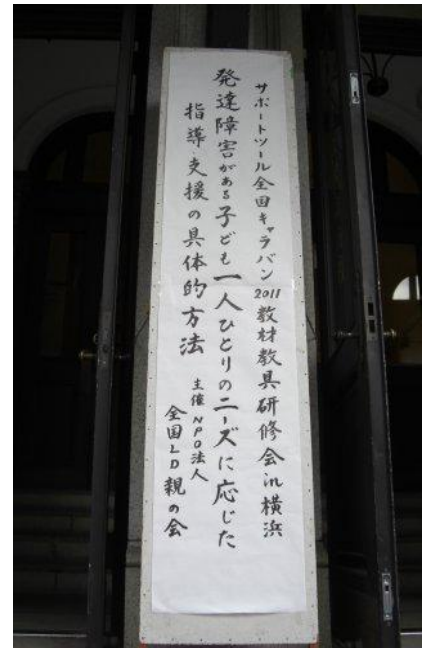 サポートツール全国キャラバン2011教材教具研修会in横浜
発達障害がある子ども一人ひとりのニーズに応じた
指導・支援の具体的方法
主催 NPO法人
全国LD親の会